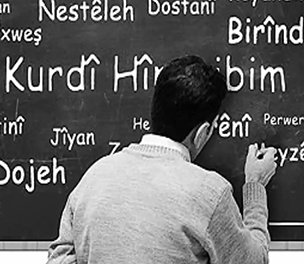 Nestêleh Dostanî
xweş Birînd
Kurdî Hîn ibim
inî Jîyan He rênî Perwer
Dojeh eyzê